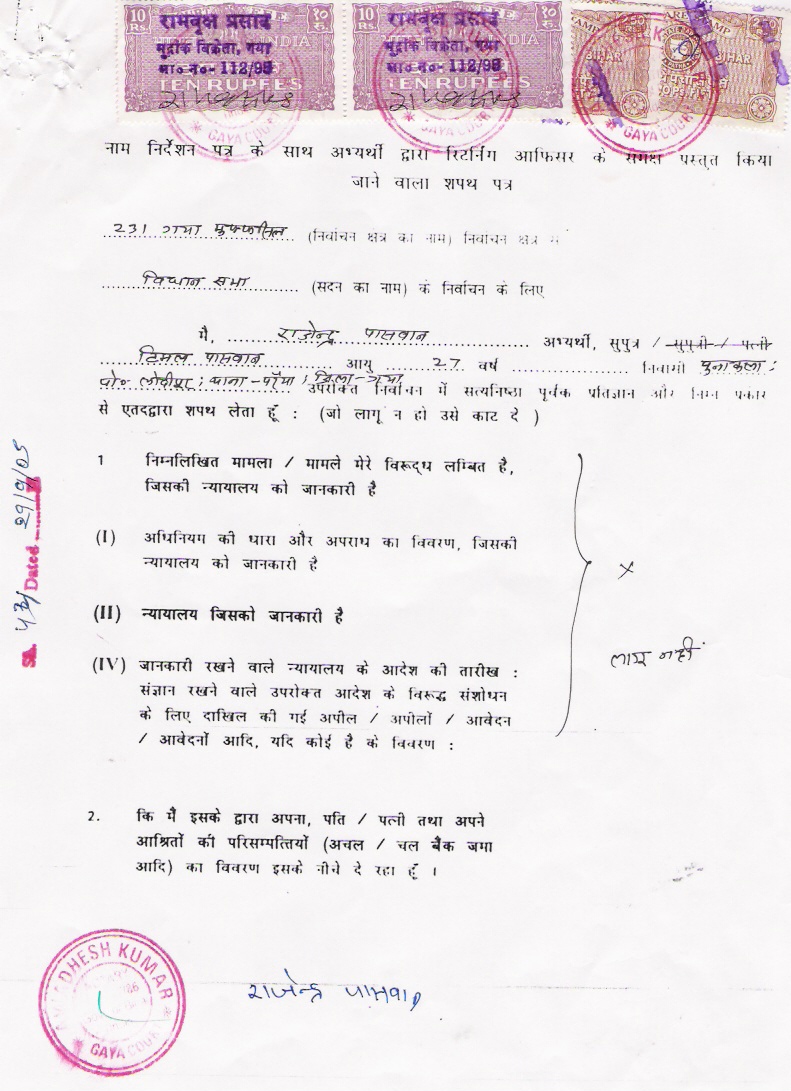 10 Rs.
१० रु.
INDIA
रामबृक्ष प्रसाद
मुद्रांक विक्रेता, गया
भा० न०- 112/98
TEN RUPEES
GAYA COURT
10 Rs.
१० रु.
INDIA
रामबृक्ष प्रसाद
मुद्रांक विक्रेता, गया
भा० न०- 112/98
TEN RUPEES
GAYA COURT
BIHAR
BIHAR
GAYA COURT
नाम निर्देशन पत्र के साथ अभ्यर्थी द्वारा रिटर्निंग आफिसर के समक्ष प्रस्तुत किया
जाने वाला शपथ पत्र
231 गया मुफ्फसिल (निर्वाचन क्षेत्र का नाम) निर्वाचन क्षेत्र में
विधान सभा (सदन का नाम) के निर्वाचन के लिए
मै, राजेन्द्र पासवान अभ्यर्थी, सुपुत्र / सुपुत्री / पत्नी
टिमल पासवान आयु 27 वर्ष निवासी
पो०
उपरोक्त निर्वाचन में सत्यनिष्ठा पूर्वक प्रतिज्ञान और निम्न प्रकार
से एतदद्वारा शपथ लेता हूँ : (जो लागू न हो उसे काट दे )
1 निम्नलिखित मामला / मामले मेरे विरूद्ध लम्बित है,
जिसकी न्यायालय को जानकारी है
(I) अधिनियम की धारा और अपराध का विवरण, जिसकी
न्यायालय को जानकारी है
(II) न्यायालय जिसको जानकारी है
×
लागू नहीं
(IV) जानकारी रखने वाले न्यायालय के आदेश की तारीख :
संज्ञान रखने वाले उपरोक्त आदेश के विरूद्ध संशोधन
के लिए दाखिल की गई अपील / अपीलों / आवेदन
/ आवेदनों आदि, यदि कोई है के विवरण :
Dated
2. कि मैं इसके द्वारा अपना, पति / पत्नी तथा अपने
आश्रितों की परिसम्पत्तियों (अचल / चल बैंक जमा
आदि) का विवरण इसके नीचे दे रहा हूँ ।
DHESH KUMAR
GAYA COURT
राजेन्द्र पासवान